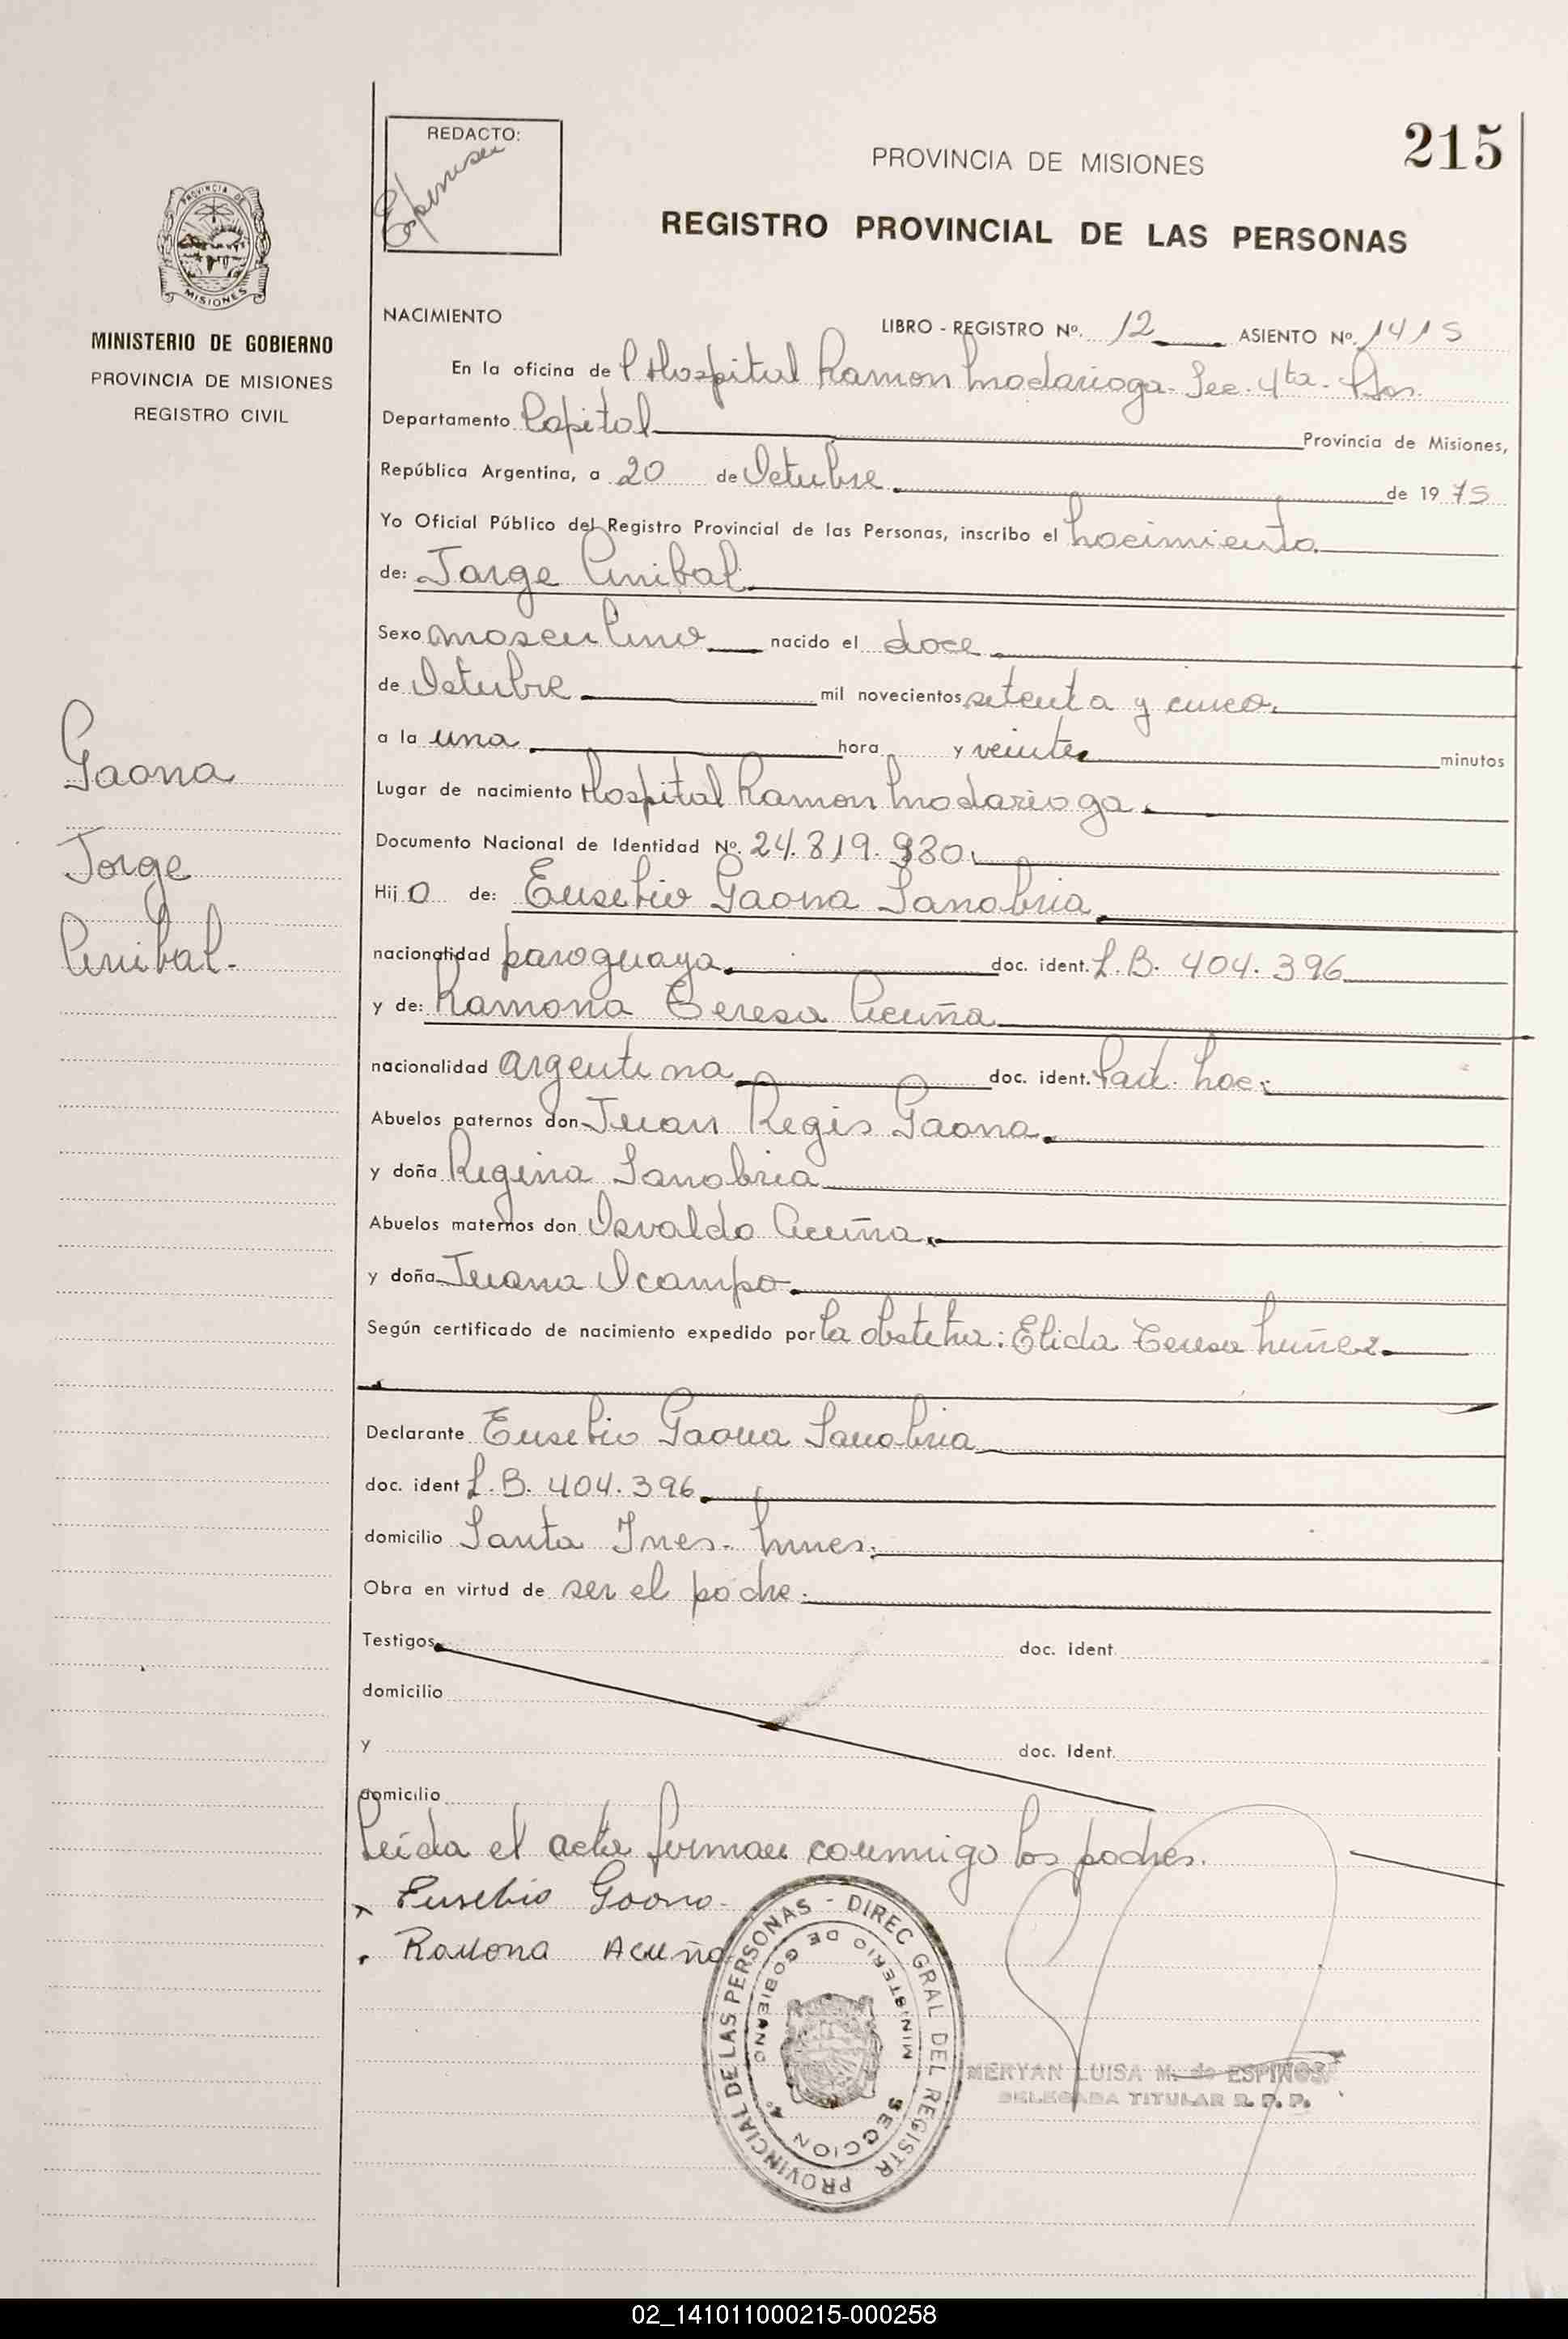 REDACTO:
PROVINCIA DE MISIONES
215
REGISTRO PROVINCIAL DE LAS PERSONAS
PROVINCIA DE
MISIONES
MINISTERIO DE GOBIERNO
PROVINCIA DE MISIONES
REGISTRO CIVIL
NACIMIENTO
LIBRO - REGISTRO Nº. 12 ASIENTO Nº. 1415
En la oficina de l Hospital Ramon Madariaga - Sec. 4ta - Pdas.
Departamento Capital Provincia de Misiones,
República Argentina, a 20 de Octubre de 1975
Yo Oficial Público del Registro Provincial de las Personas, inscribo el nacimiento
de: Jorge Anibal
Sexo masculino nacido el doce
de Octubre mil novecientos setenta y cinco.
a la una hora y veinte minutos
Lugar de nacimiento Hospital Ramon Madariaga.
Documento Nacional de Identidad Nº. 24.819.980.
Hijo de: Eusebio Gaona Sanabria
nacionalidad paraguaya doc. ident. L.B. 404.396
y de: Ramona Teresa Acuña
nacionalidad argentina doc. ident. Part. Nac.
Abuelos paternos don Juan Regis Gaona
y doña Regina Sanabria
Abuelos maternos don Osvaldo Acuña
y doña Juana Ocampo
Según certificado de nacimiento expedido por la obstetra: Elida Teresa Nuñez.
Declarante Eusebio Gaona Sanabria
doc. ident L.B. 404.396
domicilio Santa Ines - Mnes.
Obra en virtud de ser el padre.
Testigos doc. ident.
domicilio
y doc. Ident.
domicilio
Leída el acta firman conmigo los padres.
x Eusebio Gaona
Ramona Acuña
Gaona
Jorge
Anibal-
DIREC GRAL DEL REGISTR PROVINCIAL DE LAS PERSONAS -
MINISTERIO DE GOBIERNO
SECCION 4º
MERYAN LUISA M. de ESPINOSA
DELEGADA TITULAR R. P. P.
02_141011000215-000258